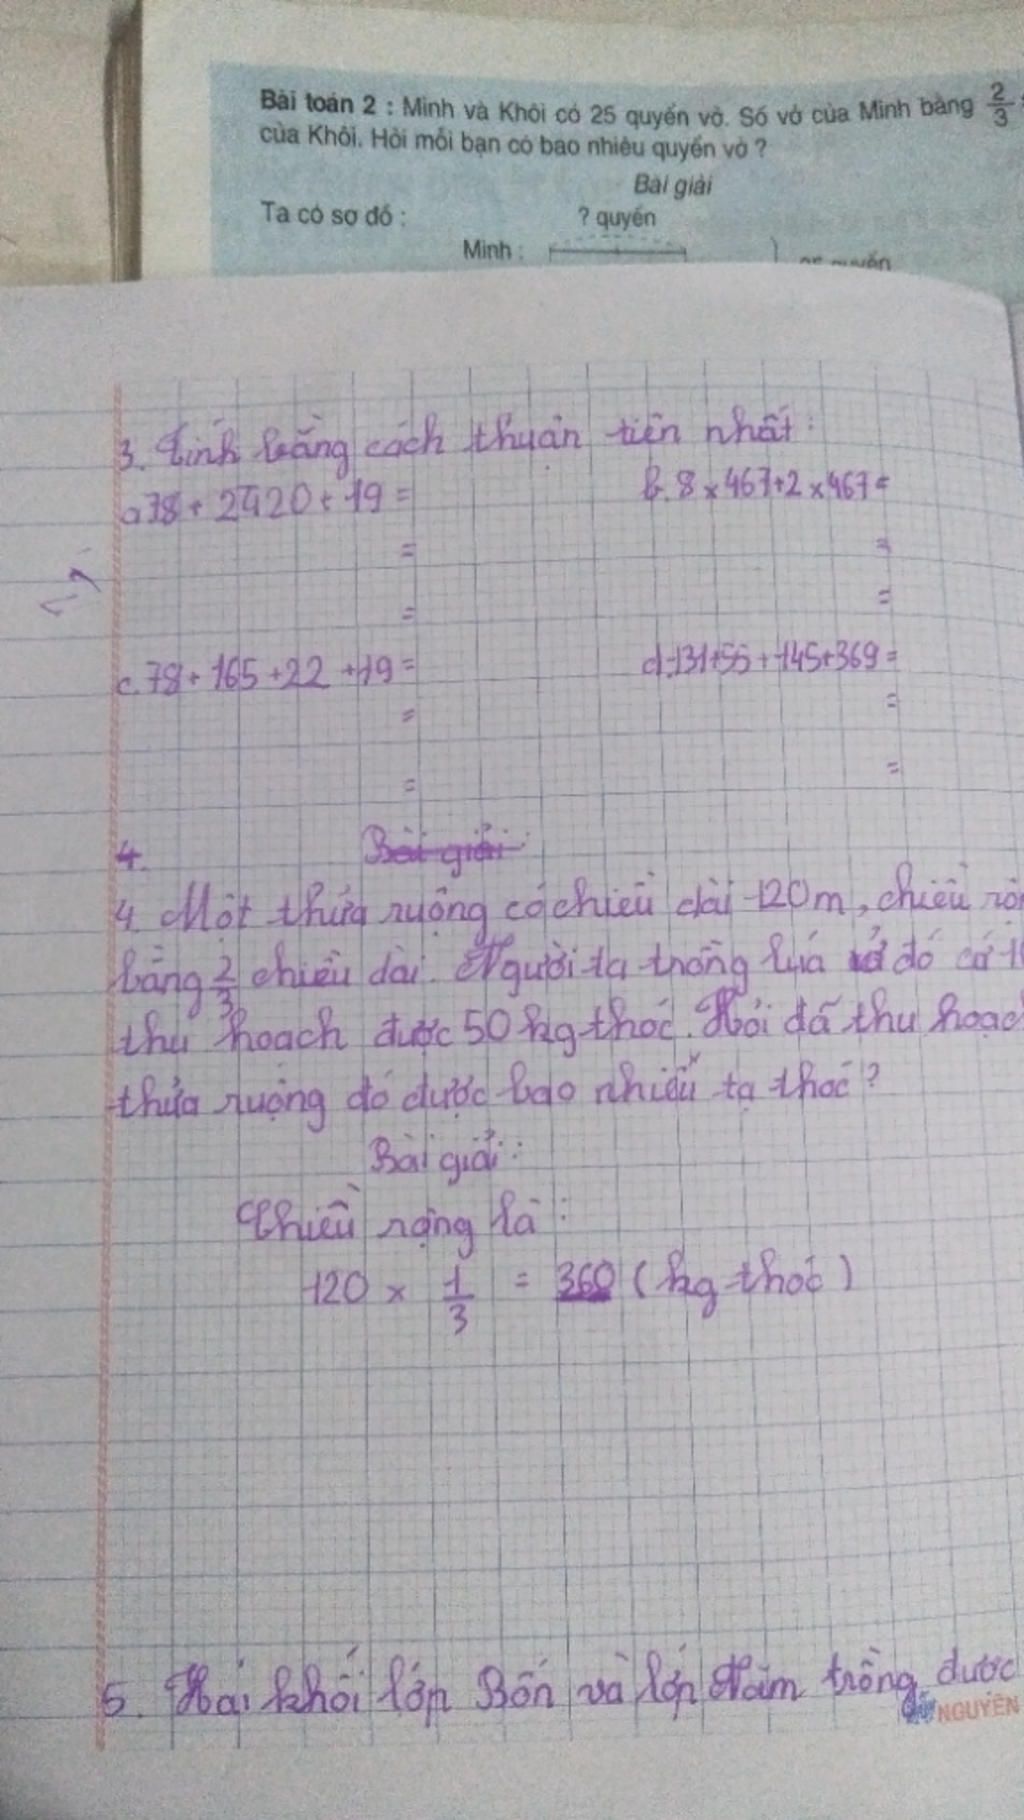 Bài toán 2 : Minh và Khôi có 25 quyển vở. Số vở của Minh bằng 2/3
của Khôi. Hỏi mỗi bạn có bao nhiêu quyển vở ?
Bài giải
Ta có sơ đồ :
? quyển
Minh :
quyển
3. Tính bằng cách thuận tiện nhất :
a 78 + 2420 + 19 =
b. 8 x 467 + 2 x 467 =
=
=
=
=
c. 78 + 165 + 22 + 19 =
d. 131 + 55 + 145 + 369 =
=
=
=
=
4. Bài giải:
4. Một thửa ruộng có chiều dài 120 m, chiều
bằng 2/3 chiều dài. Người ta trồng lúa ở đó cứ
thu hoạch được 50 kg thóc. Hỏi đã thu
thửa ruộng đó được bao nhiêu tạ thóc ?
Bài giải :
Chiều rộng là :
120 x 1/3 = 360 ( kg thóc )
5. Hai khối lớp Bốn và lớp Năm trồng được
NGUYÊN